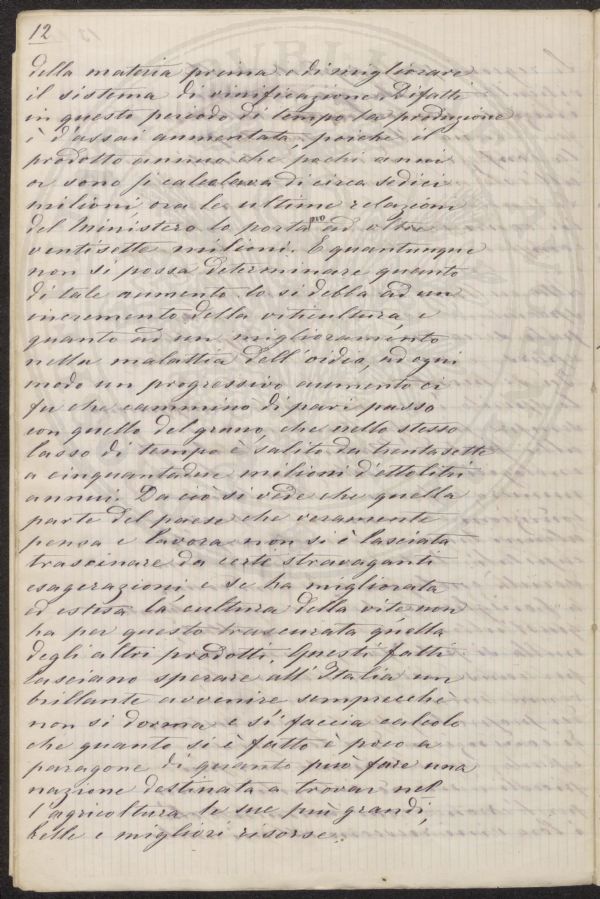 12
della materia prima e di migliorare
il sistema di vinificazione. Difatti
in questo periodo di tempo la produzione
è d'assai aumentata, poichè il
prodotto annuo che pochi anni
or sono si calcolava di circa sedici
milioni, ora le ultime relazioni
del Ministero lo portano ad oltre
ventisette milioni. E quantunque
non si possa determinare quanto
di tale aumento lo si debba ad un
incremento della viticultura, e
quanto ad un miglioramento
nella malattia dell'oidio, ad ogni
modo un progressivo aumento ci
fu che cammino di pari passo
con quello del grano, che nello stesso
lasso di tempo è salito da trentasette
a cinquantadue milioni d'ettolitri
annui. Da ciò si vede che quella
parte del paese che veramente
pensa e lavora non si è lasciata
trascinare da certe stravaganti
esagerazioni e se ha migliorata
ed estesa la cultura della vite non
ha per questo trascurata quella
degli altri prodotti. Questi fatti
lasciano sperare all'Italia un
brillante avvenire semprecchè
non si dorma e si faccia calcolo
che quanto si è fatto è poco a
paragone di quanto può fare una
nazione destinata a trovar nel
l'agricoltura le sue più grandi,
belle e migliori risorse.